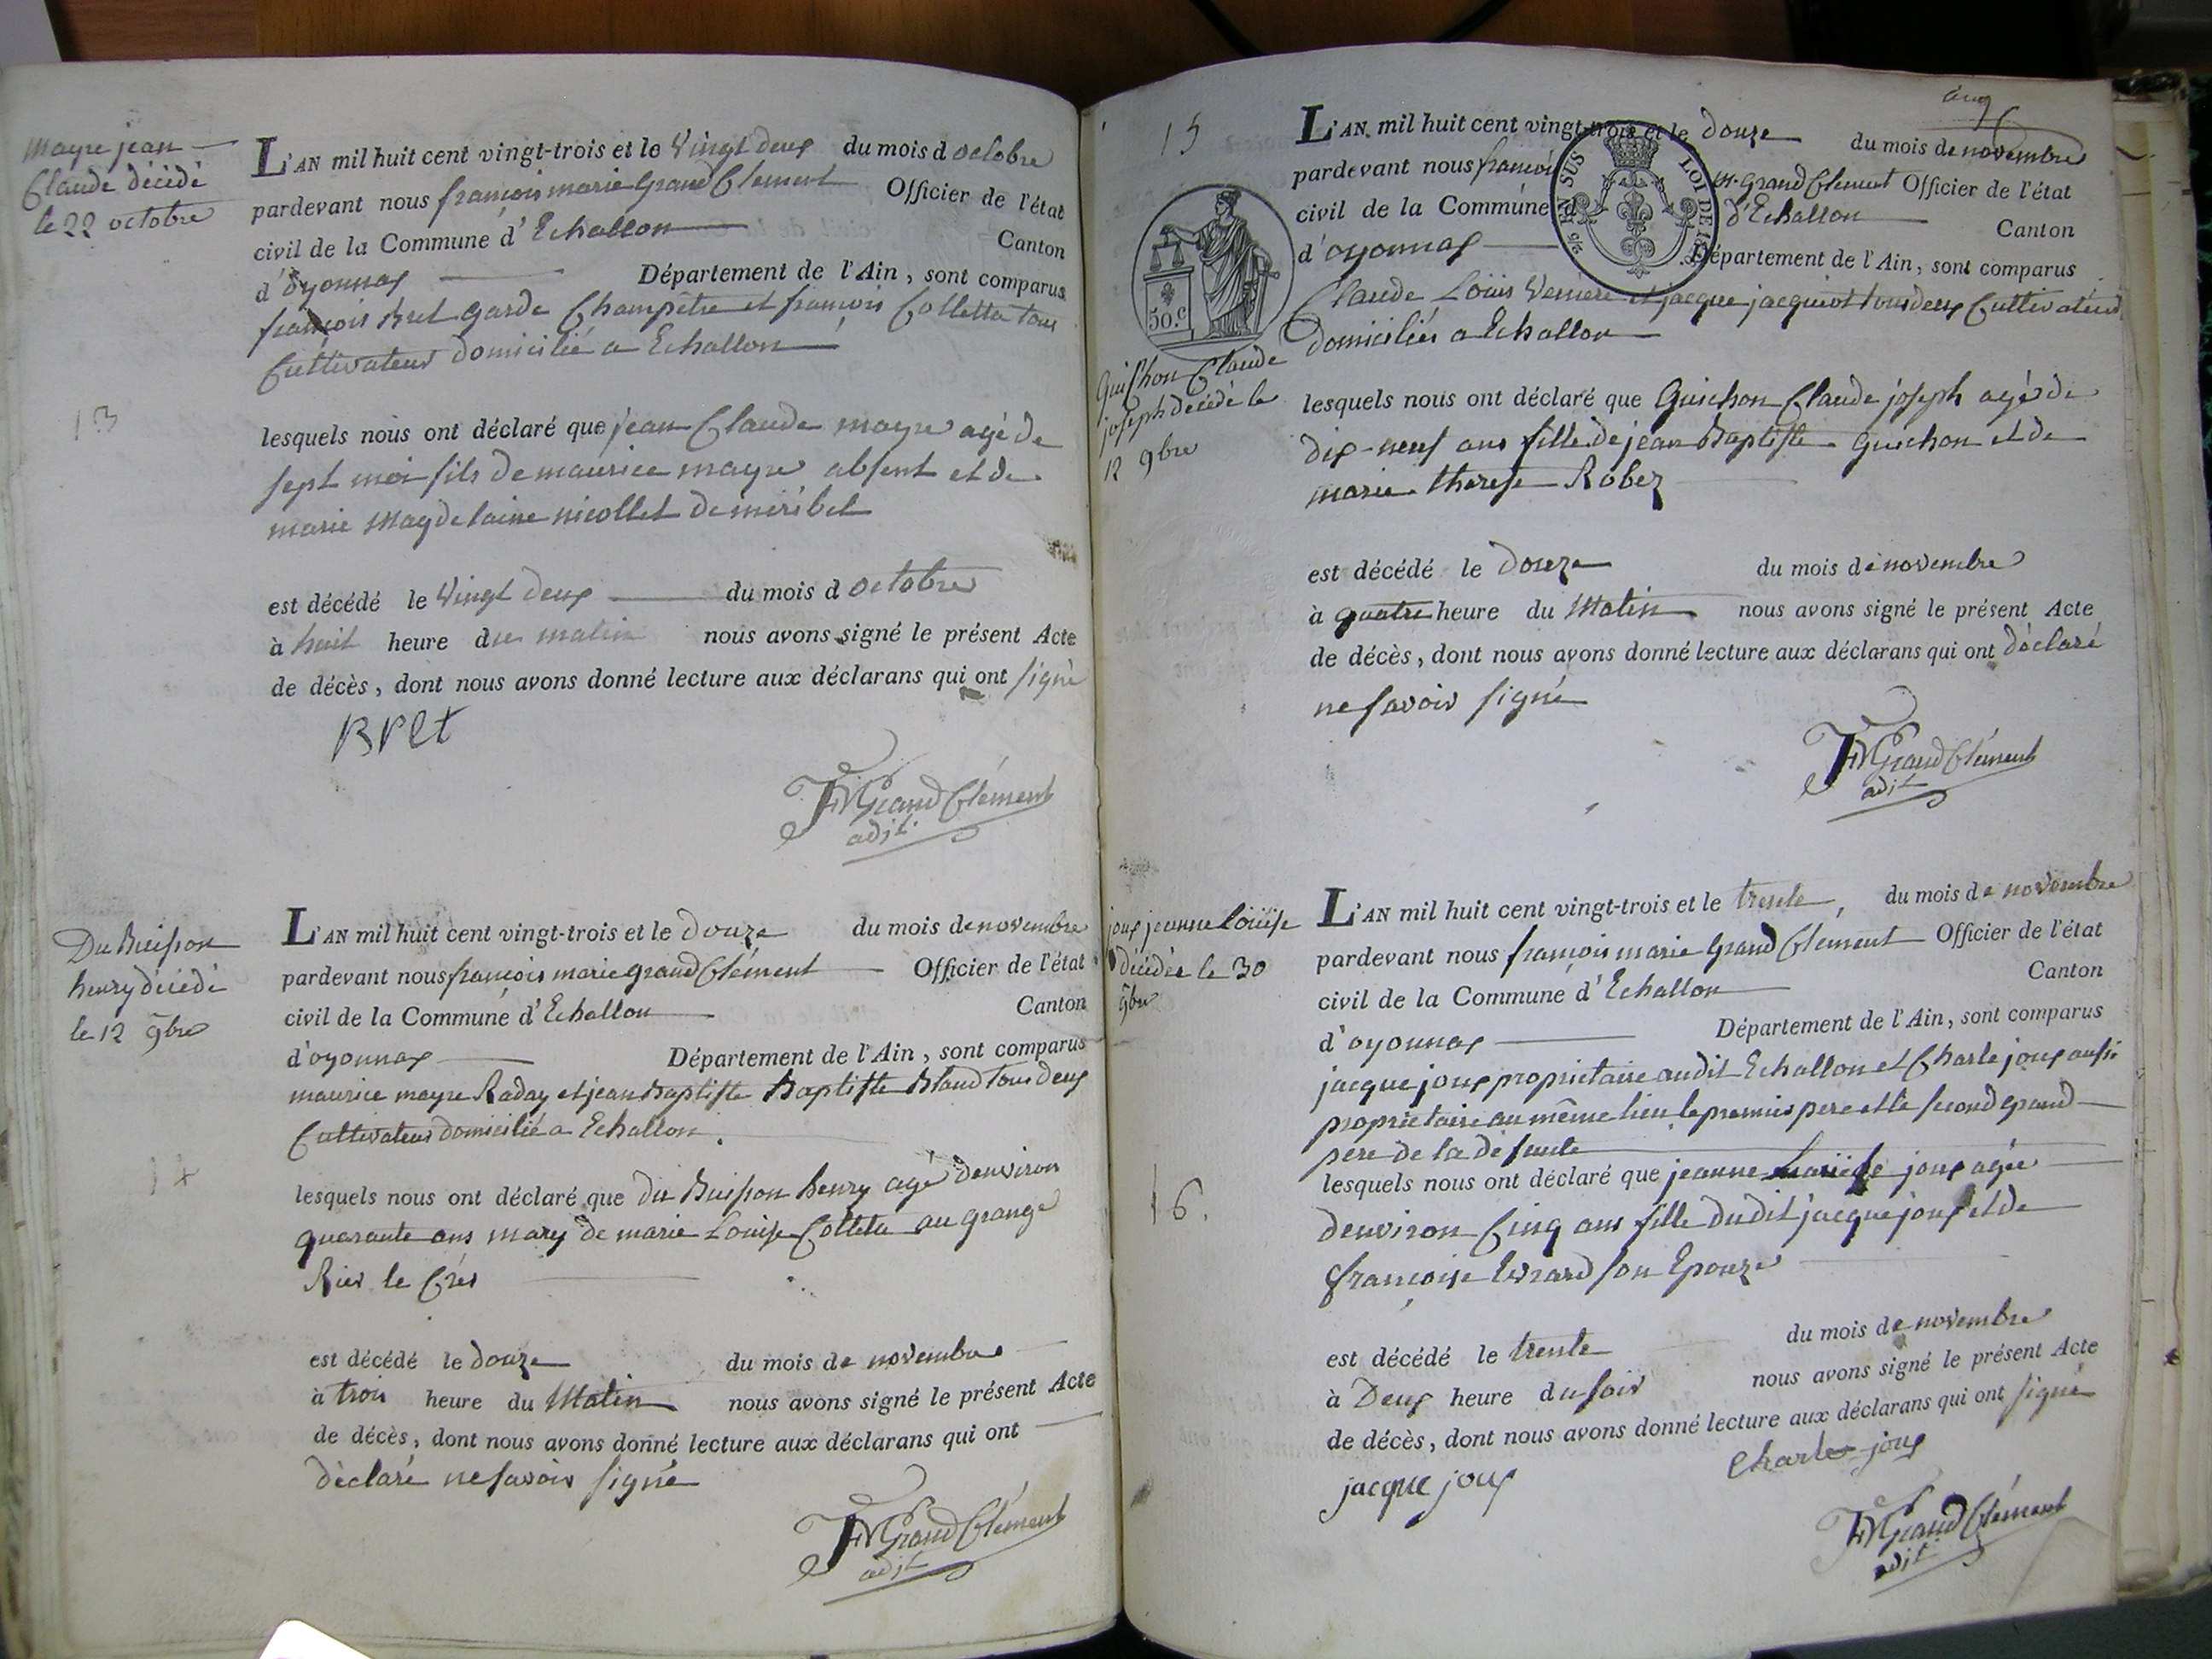 mayre jean
Claude décédé
le 22 octobre
L'AN mil huit cent vingt-trois et le vingt deux du mois d octobre
pardevant nous françois marie Grand Clement Officier de l'état
civil de la Commune d'Echallon Canton
d'oyonnax Département de l'Ain, sont comparus
françois Bret garde Champêtre et françois Colletta tous
Cultivateur domicilié a Echallon
13
lesquels nous ont déclaré que jean Claude mayre agé de
sept moi fils de maurice mayre absent et de
marie Magdelaine nicollet de miribel
est décédé le vingt deux du mois d octobre
à huit heure du matin nous avons signé le présent Acte
de décès, dont nous avons donné lecture aux déclarans qui ont signé
Bret
FM Grand Clément
adjt.
Du Buisson
henry décédé
le 12 9bre
L'AN mil huit cent vingt-trois et le douze du mois de novembre
pardevant nous françois marie grand Clément Officier de l'état
civil de la Commune d'Echallon Canton
d'oyonnax Département de l'Ain, sont comparus
maurice mayre Raday et jean Baptiste Baptiste Bland tous deux
Cultivateur domicilié a Echallon.
14
lesquels nous ont déclaré que du Buisson henry agé d'environ
quarante ans mary de marie Louise Colleta au grange
Rier le Crés
est décédé le douze du mois de novembre
à trois heure du Matin nous avons signé le présent Acte
de décès, dont nous avons donné lecture aux déclarans qui ont
déclaré ne savoir signé
FM Grand Clément
adjt
15
L'AN mil huit cent vingt-trois et le douze du mois de novembre
pardevant nous françois M. Grand Clement Officier de l'état
civil de la Commune d'Echallon Canton
d'oyonnax Département de l'Ain, sont comparus
EN SUS LOI DE
50.c
Claude Louis Verniere et jacque jacquiot tous deux Cultivateurs
domiciliés a Echallon
Guichon Claude
joseph décédé le
12 9bre
lesquels nous ont déclaré que Guichon Claude joseph agé de
dix-neuf ans fille de jean Baptiste Guichon et de
marie therese Robez
est décédé le douze du mois de novembre
à quatre heure du Matin nous avons signé le présent Acte
de décès, dont nous avons donné lecture aux déclarans qui ont déclaré
ne savoir signé
FM Grand Clément
adjt
joux jeanne Louise
décédée le 30
9bre
L'AN mil huit cent vingt-trois et le trente, du mois de novembre
pardevant nous françois marie Grand Clement Officier de l'état
civil de la Commune d'Echallon Canton
d'oyonnax Département de l'Ain, sont comparus
jacque joux proprietaire audit Echallon et Charle joux aussi
proprietaire au même lieu le premier pere et le second grand
pere de la defunte
16.
lesquels nous ont déclaré que jeanne joux agée
d'environ Cinq ans fille dudit jacque joux et de
françoise Evrard son Epouze
est décédé le trente du mois de novembre
à Deux heure du soir nous avons signé le présent Acte
de décès, dont nous avons donné lecture aux déclarans qui ont signé
jacque joux Charle joux
FM Grand Clément
adjt